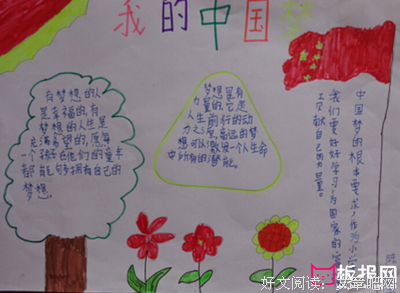 我的中国梦
有梦想的人
是幸福的,有
梦想的人生是
充满希望的,愿每
一个孩子在他们的童年
都能够拥有自己的
梦想.
梦想是有
力量的,它是
人生前行的动
力之源;高远的梦
想可以激发一个人生命
中所有的潜能。
中国梦的根本要求,作为小
我们要好好学习,为国家的
贡献自己的力量。
板报网
好文阅读:文章吧网